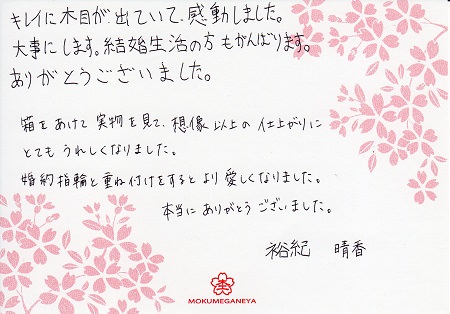 キレイに木目が出ていて、感動しました。
大事にします。結婚生活の方もがんばります。
ありがとうございました。
箱をあけて実物を見て、想像以上の仕上がりに
とてもうれしくなりました。
婚約指輪と重ね付けをするとより愛しくなりました。
本当にありがとうございました。
裕紀 晴香
MOKUMEGANEYA